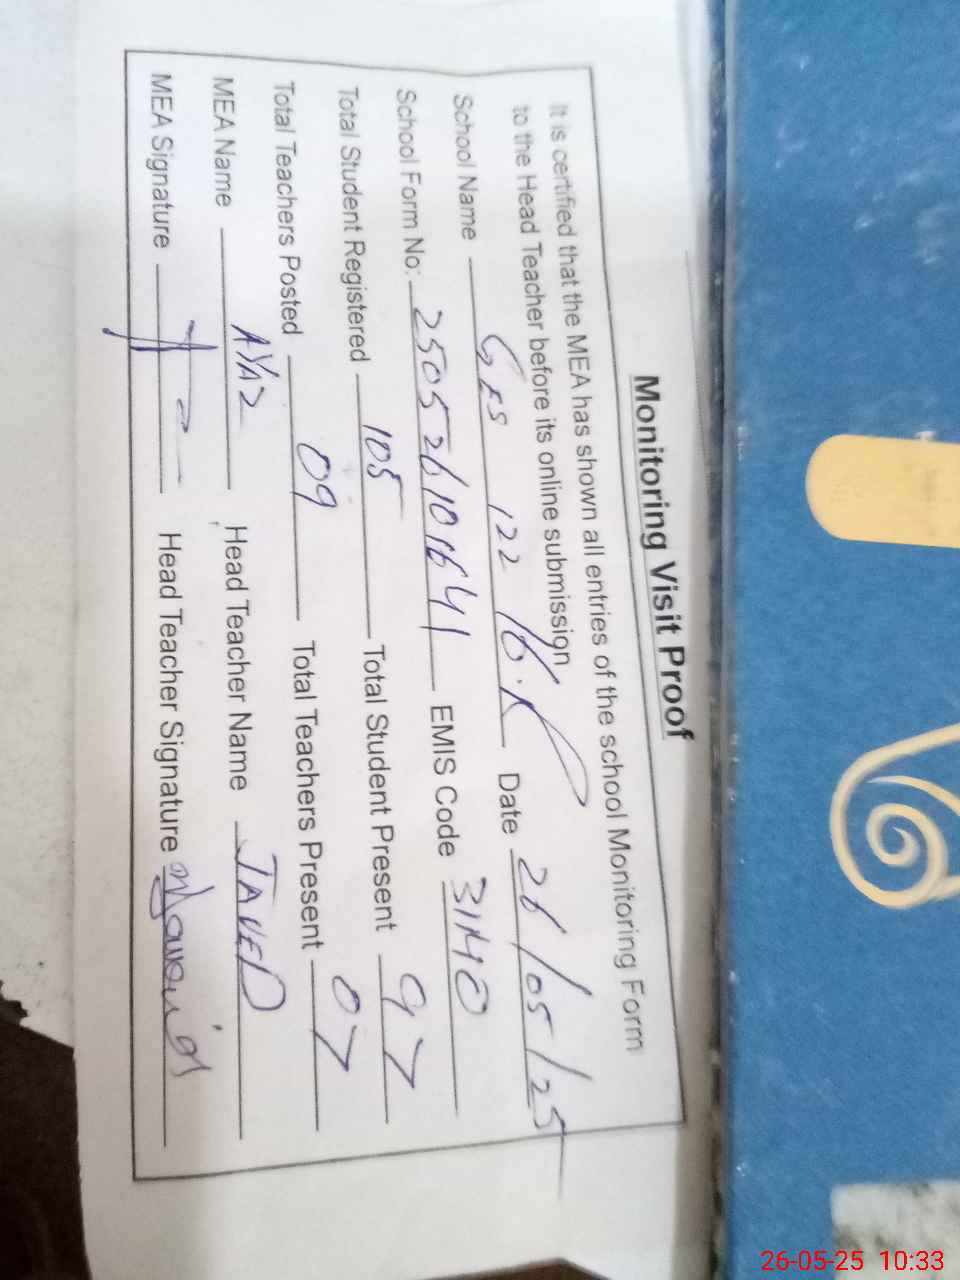 Monitoring Visit Proof
It is certified that the MEA has shown all entries of the school Monitoring Form
to the Head Teacher before its online submission
School Name GES 122 Date 26/05/25
School Form No: EMIS Code 31140
Total Student Registered 105 Total Student Present 97
Total Teachers Posted 09 Total Teachers Present 07
MEA Name AYAZ Head Teacher Name JAVED
MEA Signature Head Teacher Signature
26-05-25 10:33